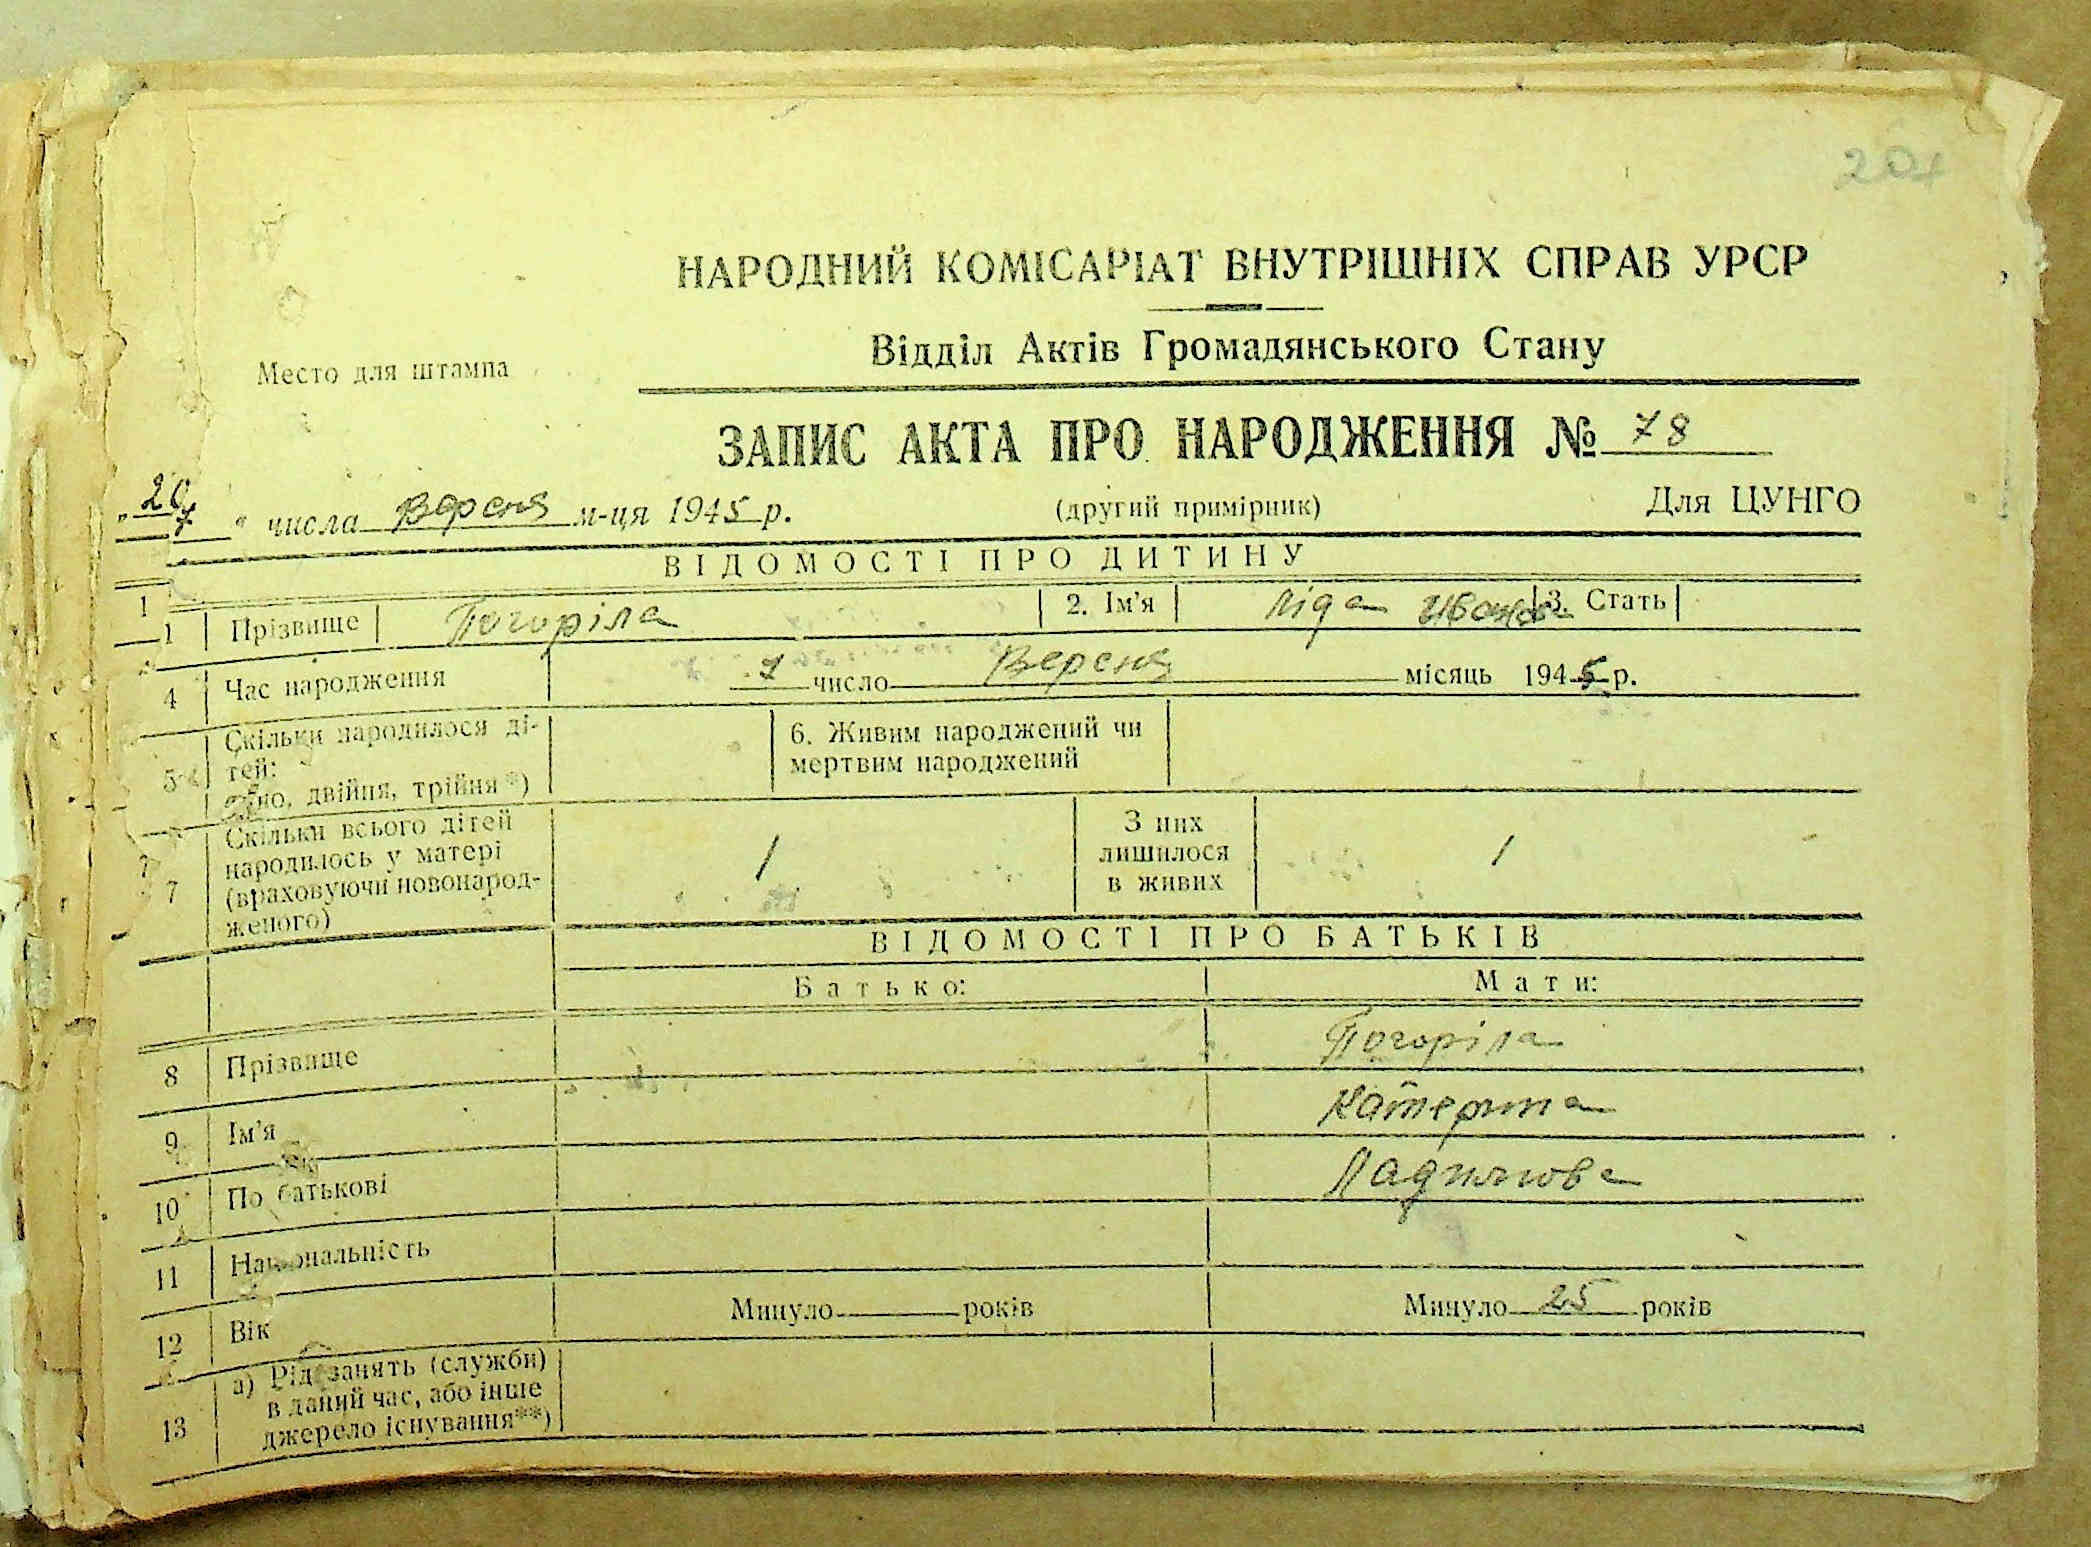 207
НАРОДНИЙ КОМІСАРІАТ ВНУТРІШНІХ СПРАВ УРСР
Відділ Актів Громадянського Стану
Место для штампа
ЗАПИС АКТА ПРО НАРОДЖЕННЯ № 78
„ 20 " числа Вересня м-ця 1945 р. (другий примірник) Для ЦУНГО
ВІДОМОСТІ ПРО ДИТИНУ
1
1 Прізвище Погоріла 2. Ім'я Ліда Ивановна 3. Стать
4 Час народження 7 число Вересня місяць 1945 р.
5 Скільки народилося ді-
тей:
одно, двійня, трійня*)
6. Живим народжений чи
мертвим народжений
7 Скільки всього дітей
народилось у матері
(враховуючи новонарод-
женого)
1
З них
лишилося
в живих
1
ВІДОМОСТІ ПРО БАТЬКІВ
Батько: Мати:
8 Прізвище Погоріла
9 Ім'я Катерина
10 По батькові
11 Національність
12 Вік Минуло років Минуло 25 років
13 а) Рід занять (служби)
в даний час, або інше
джерело існування**)